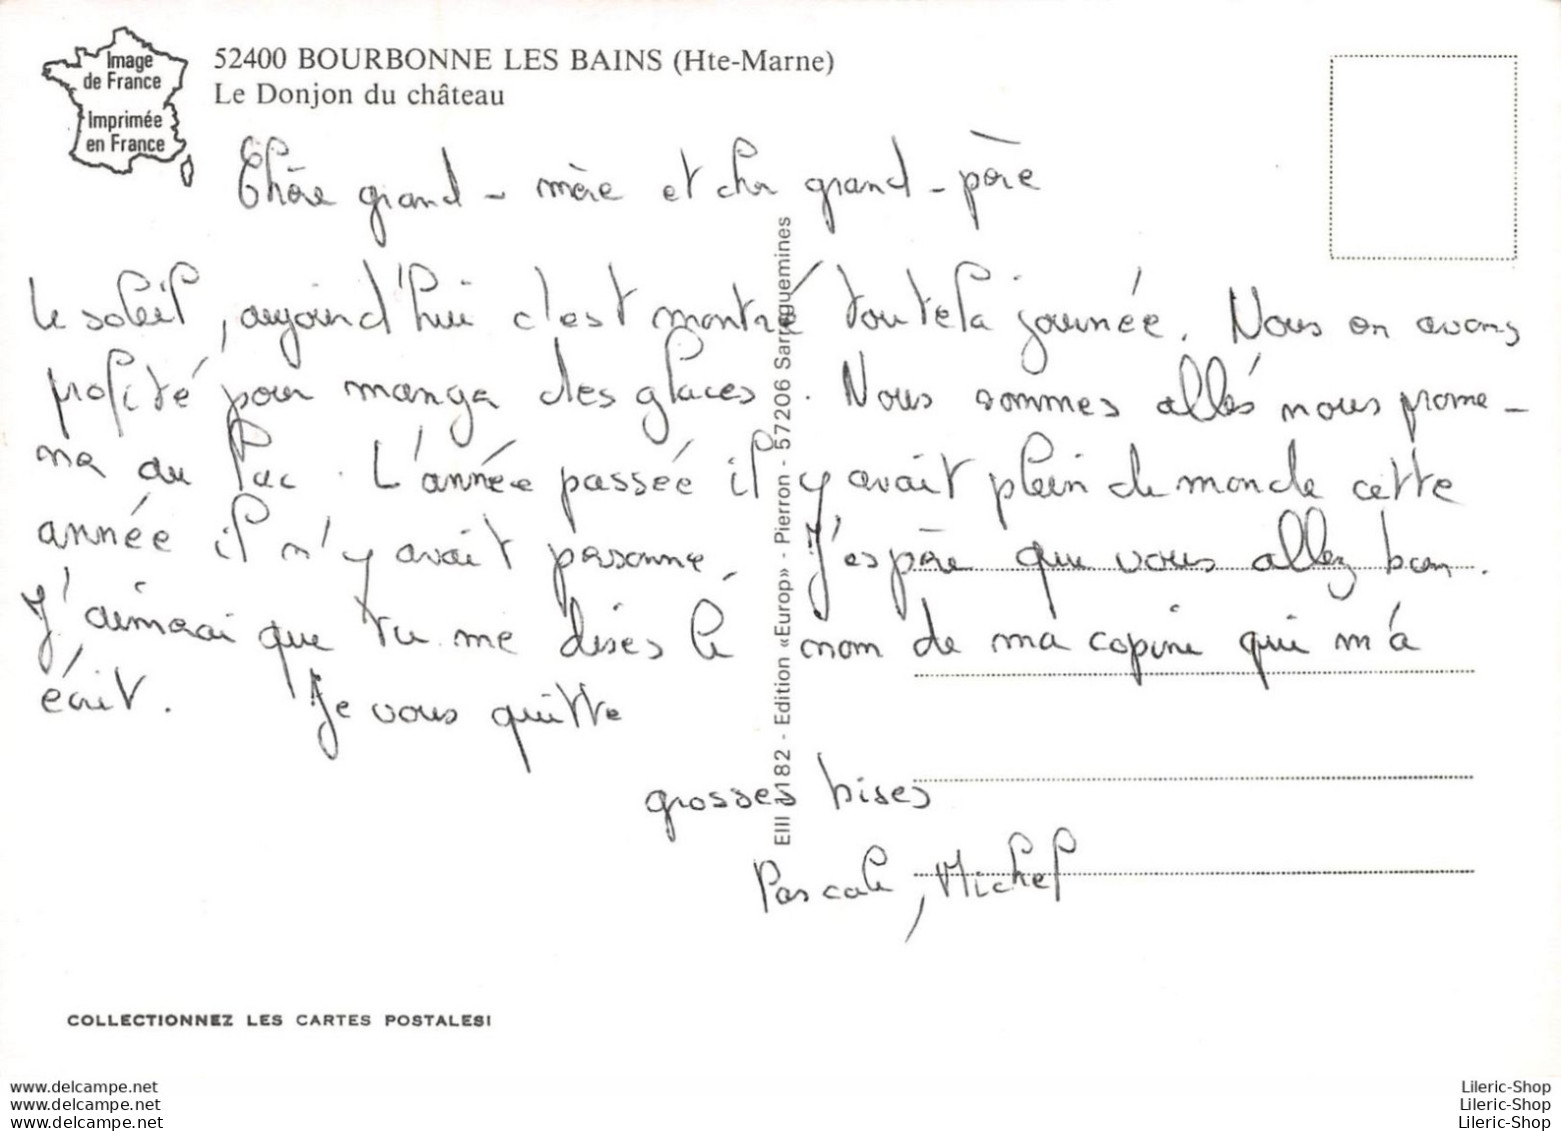 Image
de France
Imprimée
en France
52400 BOURBONNE LES BAINS (Hte-Marne)
Le Donjon du château
Chère grand-mère et cher grand-père
Le soleil, aujourd'hui c'est montré toute la journée. Nous en avons
profité pour manger des glaces. Nous sommes allés nous prome-
ner au lac. L'année passée il y avait plein de monde cette
année il n'y avait personne. J'espère que vous allez bien.
J'aimerai que tu me dises le nom de ma copine qui m'a
écrit. Je vous quitte
grosses bises
Pascale, Michel
EIII 182 - Edition «Europ» - Pierron - 57206 Sarreguemines
COLLECTIONNEZ LES CARTES POSTALES!
www.delcampe.net
www.delcampe.net
www.delcampe.net
Lileric-Shop
Lileric-Shop
Lileric-Shop